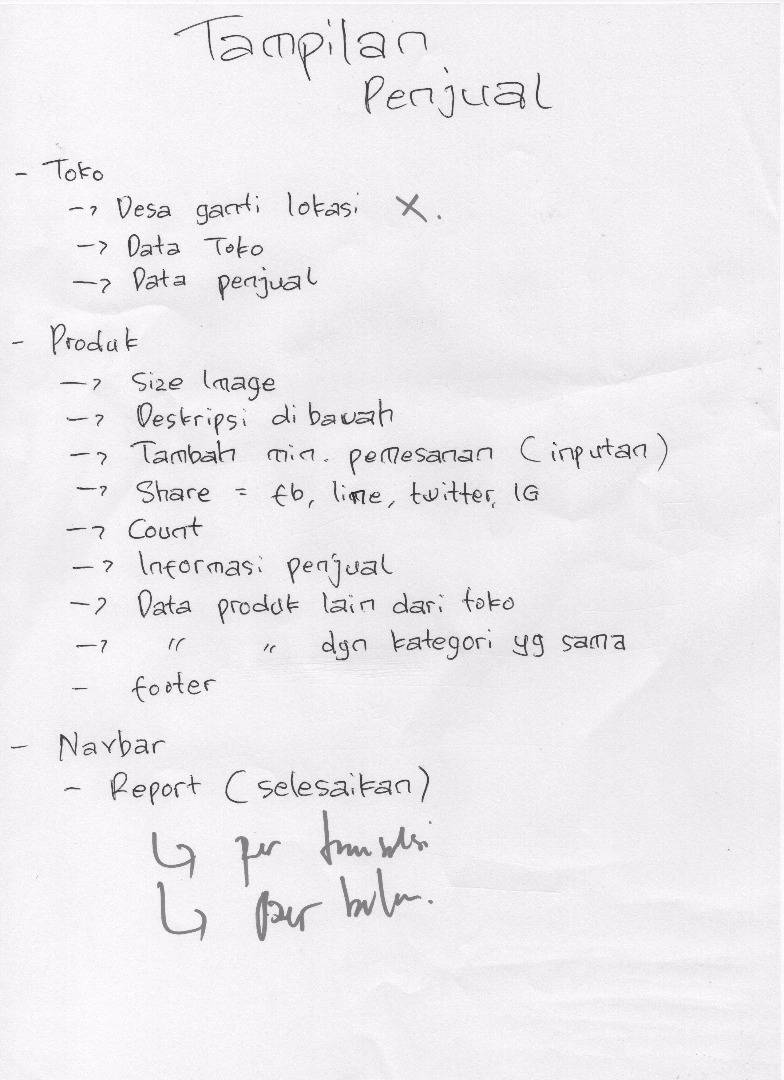 Tampilan
Penjual
- Toko
-> Desa ganti lokasi X.
-> Data Toko
-> Data penjual
- Produk
-> Size Image
-> Deskripsi di bawah
-> Tambah min. pemesanan (inputan)
-> Share = fb, line, twitter, IG
-> Count
-> Informasi penjual
-> Data produk lain dari toko
-> " " dgn kategori yg sama
- footer
- Navbar
- Report (selesaikan)
↳ per transaksi
↳ per bulan.